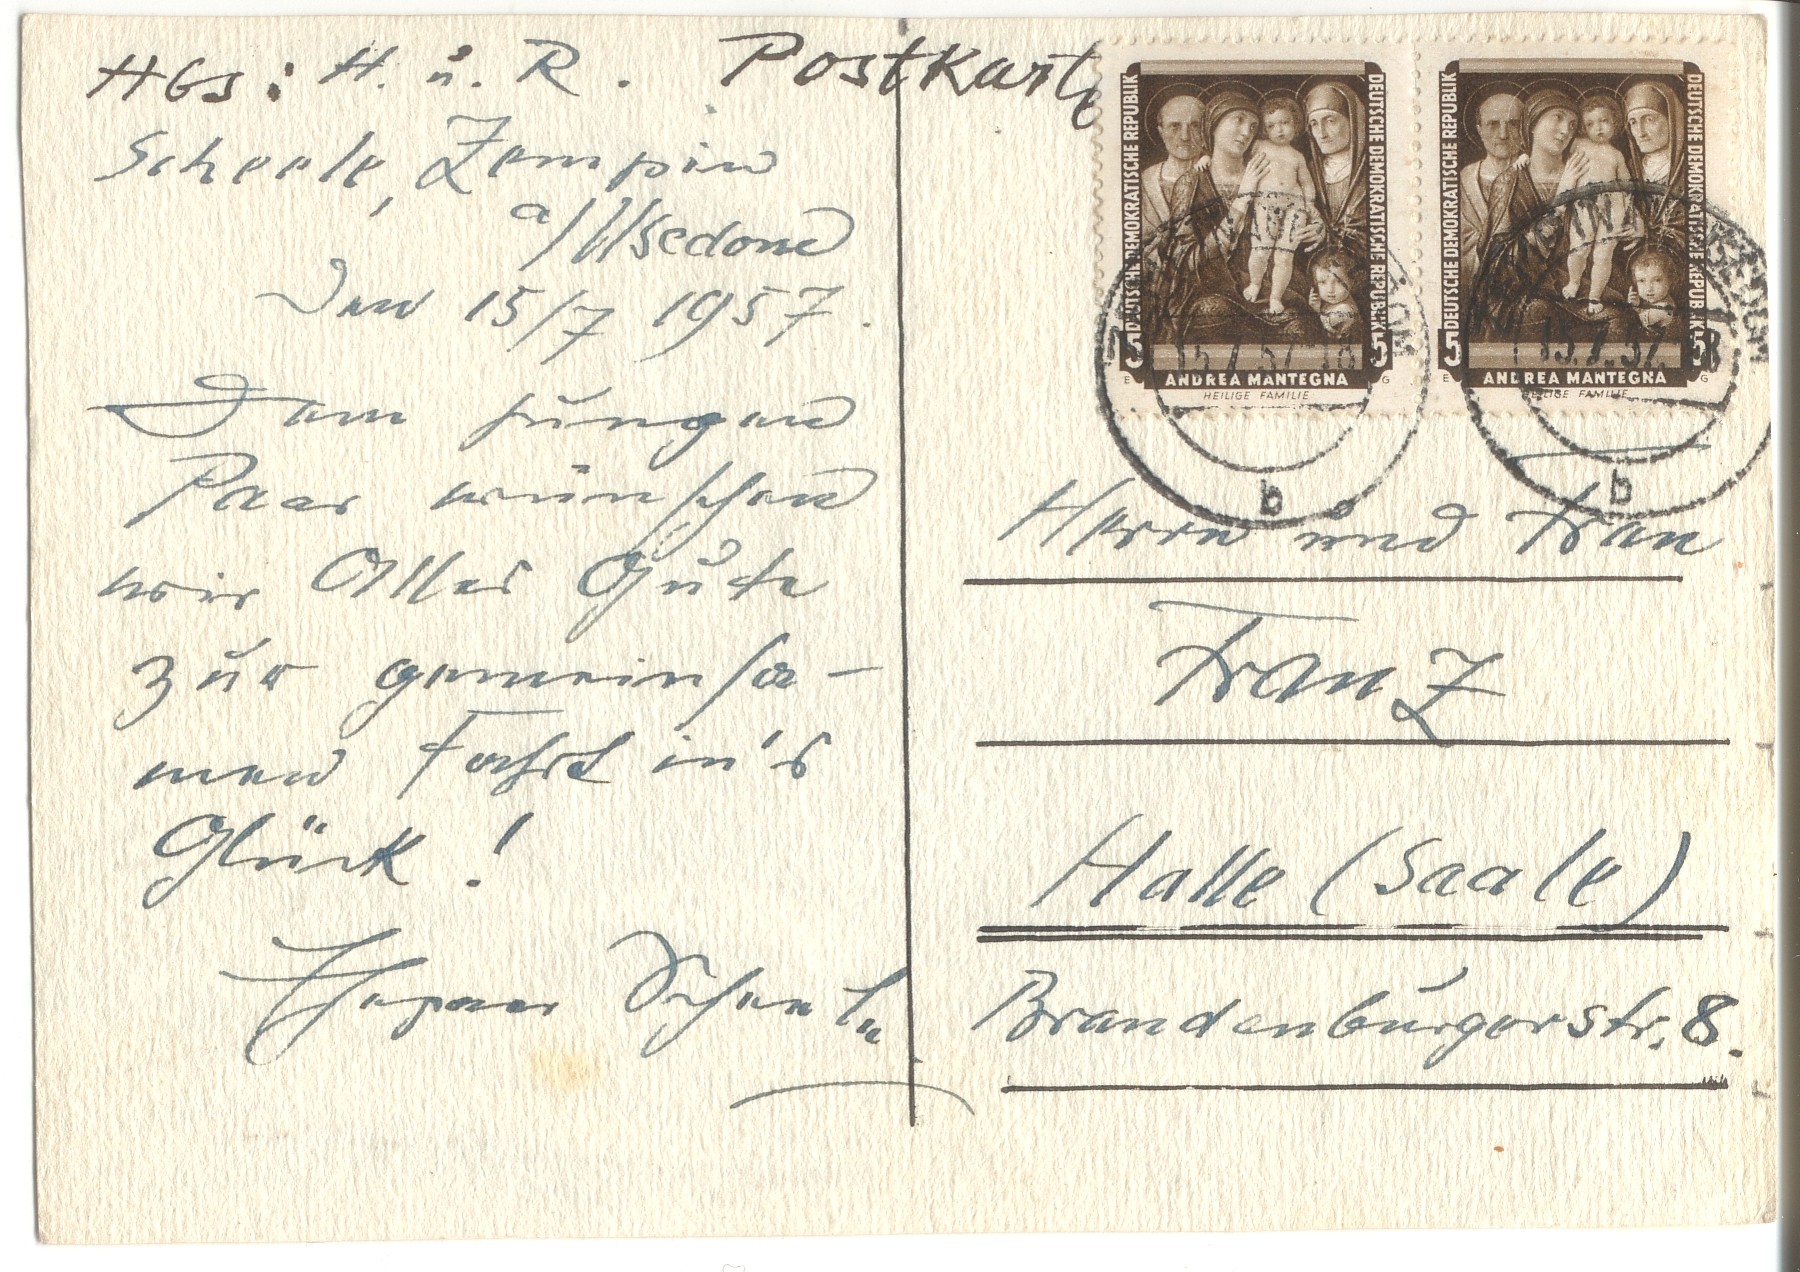 HGs: H. u. R.
Scheele, Zempin
a/Usedom
Den 15/7 1957.
Dem jungen
Paar wünschen
wir Alles Gute
zur gemeinsa-
men Fahrt in's
Glück!
Ehepaar Scheele
Postkarte
DEUTSCHE DEMOKRATISCHE REPUBLIK
DEUTSCHE DEMOKRATISCHE REPUBLIK
5 5
ANDREA MANTEGNA
HEILIGE FAMILIE
DEUTSCHE DEMOKRATISCHE REPUBLIK
DEUTSCHE DEMOKRATISCHE REPUBLIK
5 5
ANDREA MANTEGNA
HEILIGE FAMILIE
15.7.57
b
15.7.57
b
Herrn und Frau
Franz
Halle (Saale)
Brandenburgerstr. 8.